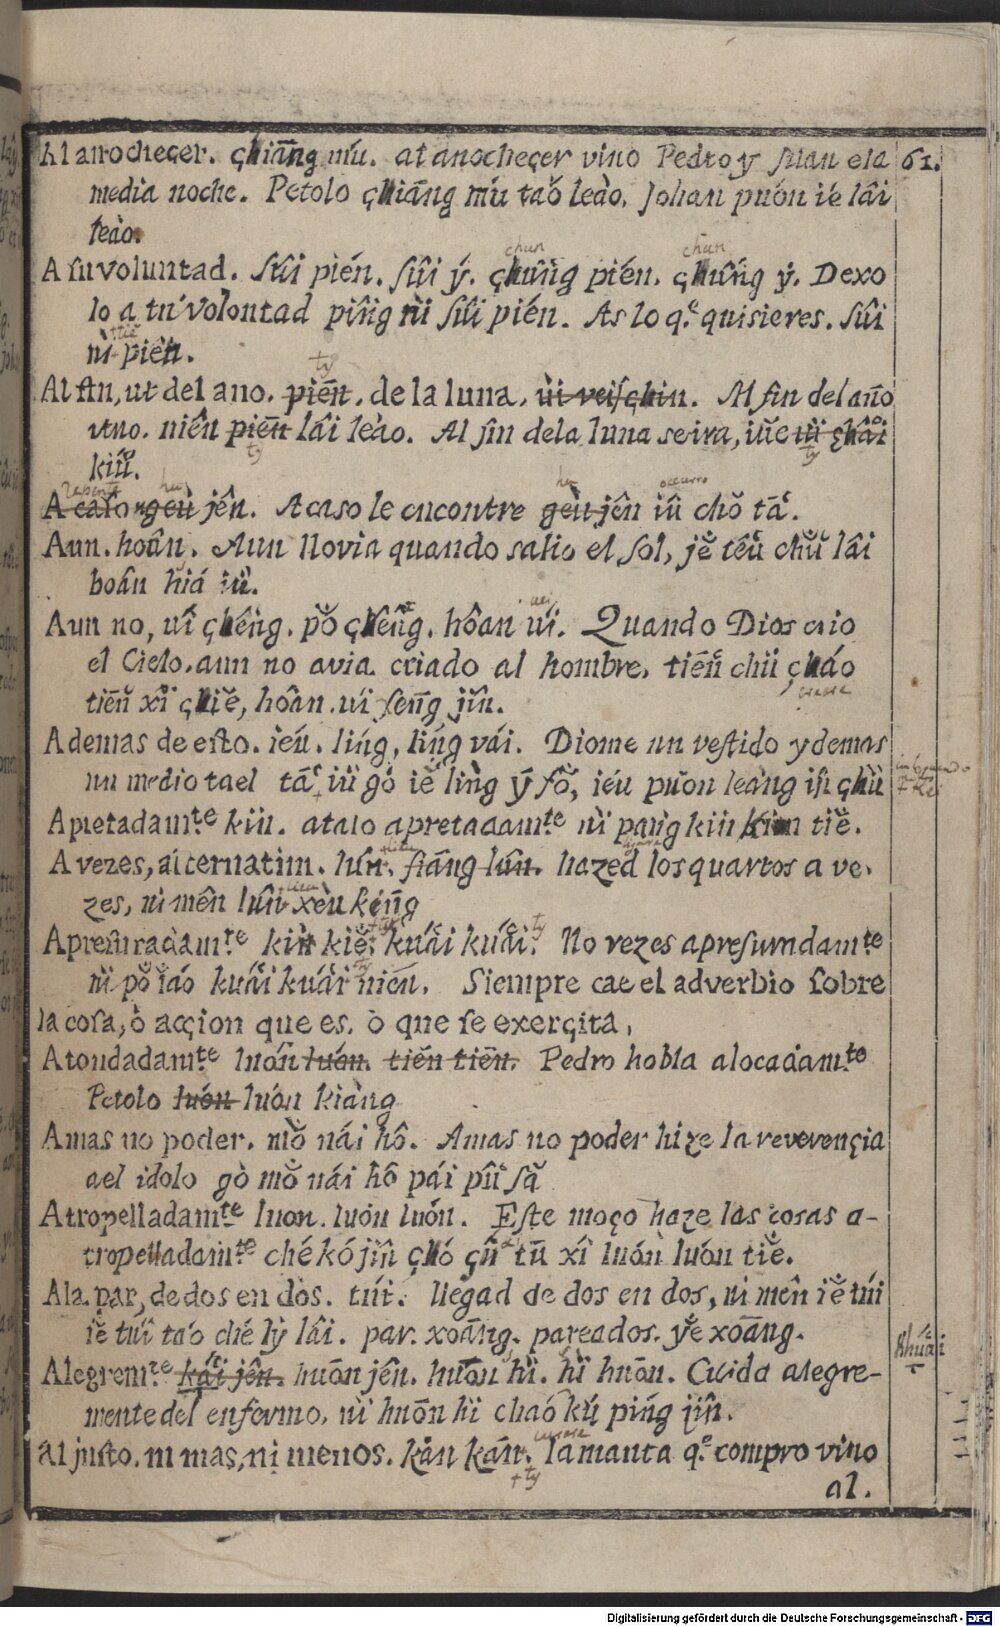 Al anochecer. çhiāng mú. al anocheçer vino Pedro y Juan ela 61.
media noche. Petolo çhiāng mú taŏ leào. Johan puón ié lâi
leào.
chun chun
A su voluntad. sûi pién. sûi ý. çhûng pién. çhûng ý. Dexo
lo a tu volontad pîng nì sûi pién. As lo q.e quisieres. sûi
nì pién.
ty
Al fin, ut del ano. piēn. de la luna, Al fin del año
vino. niên piēn lâi leào. Al fin dela luna seira,
ty ty
kiû.
repente occurro
A caso geù jên. A caso le encontre geù jên iû chŏ tā.
Aun. hoân. Aun llovia quando salio el sol, jĕ têu chŭ lâi
hoân hiá iù.
Aun no, uí çhêng. pŏ çhêng. hôan uí. Quando Dios crio
el Cielo, aun no avia criado al hombre, tiēn chù çháo
creare
tiēn xî çhiĕ, hoân uí seng jîn.
Ademas de esto. iéu. líng, líng vái. Diome un vestido y demas
un medio tael tā iù gò iĕ lìng ȳ fŏ, iéu puón leàng
Apretadam.te kìn. atalo apretadam.te nì pang kìn tiĕ.
A vezes, alternatim. lûn. siāng lûn. hazed los quartos a ve-
zes, nì mên lûn xèu kēng
Apresuradam.te kìn kiĕ. kuái kuái. No rezes apresuradam.te
ty
nì pŏ iáo kuái kuái nién. Siempre cae el adverbio sobre
la cosa, ò acçion que es, ò que se exerçita,
Atondadam.te luón luón. tiēn tiēn. Pedro habla alocadam.te
Petolo luón luón kiàng
Amas no poder. mŏ nái hô. Amas no poder hize la reverençia
ael idolo gò mŏ nái hô pái sā
Atropelladam.te luon. luón luón. Este moço haze las cosas a-
tropelladam.te ché kó jîn çhó tū xî luón luón tiĕ.
Ala par, de dos en dos. túi. llegad de dos en dos, nì mên iĕ túi
iĕ túi táo ché lỳ lâi. par. xoāng. pareados. yĕ xoāng.
khuái
Alegrem.te kái jên. huōn jên. huōn hì. hì huōn. Cuida alegre-
mente del enfermo, nì huōn hì cháo kú píng jîn.
al justo. ni mas, ni menos. kān kān. la manta q.e compro vino
ty
al.
Digitalisierung gefördert durch die Deutsche Forschungsgemeinschaft - DFG